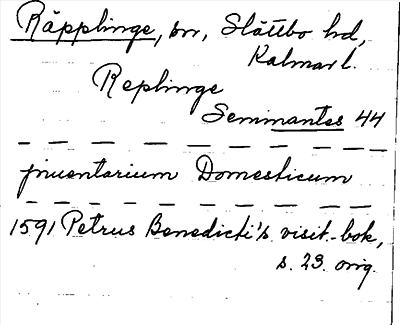 Räpplinge, sn, Slättbo hd,
Kalmar l.
Replinge
Seminantes 44
Inuentarium Domesticum
1591 Petrus Benedicti's visit.-bok,
s. 23. orig.